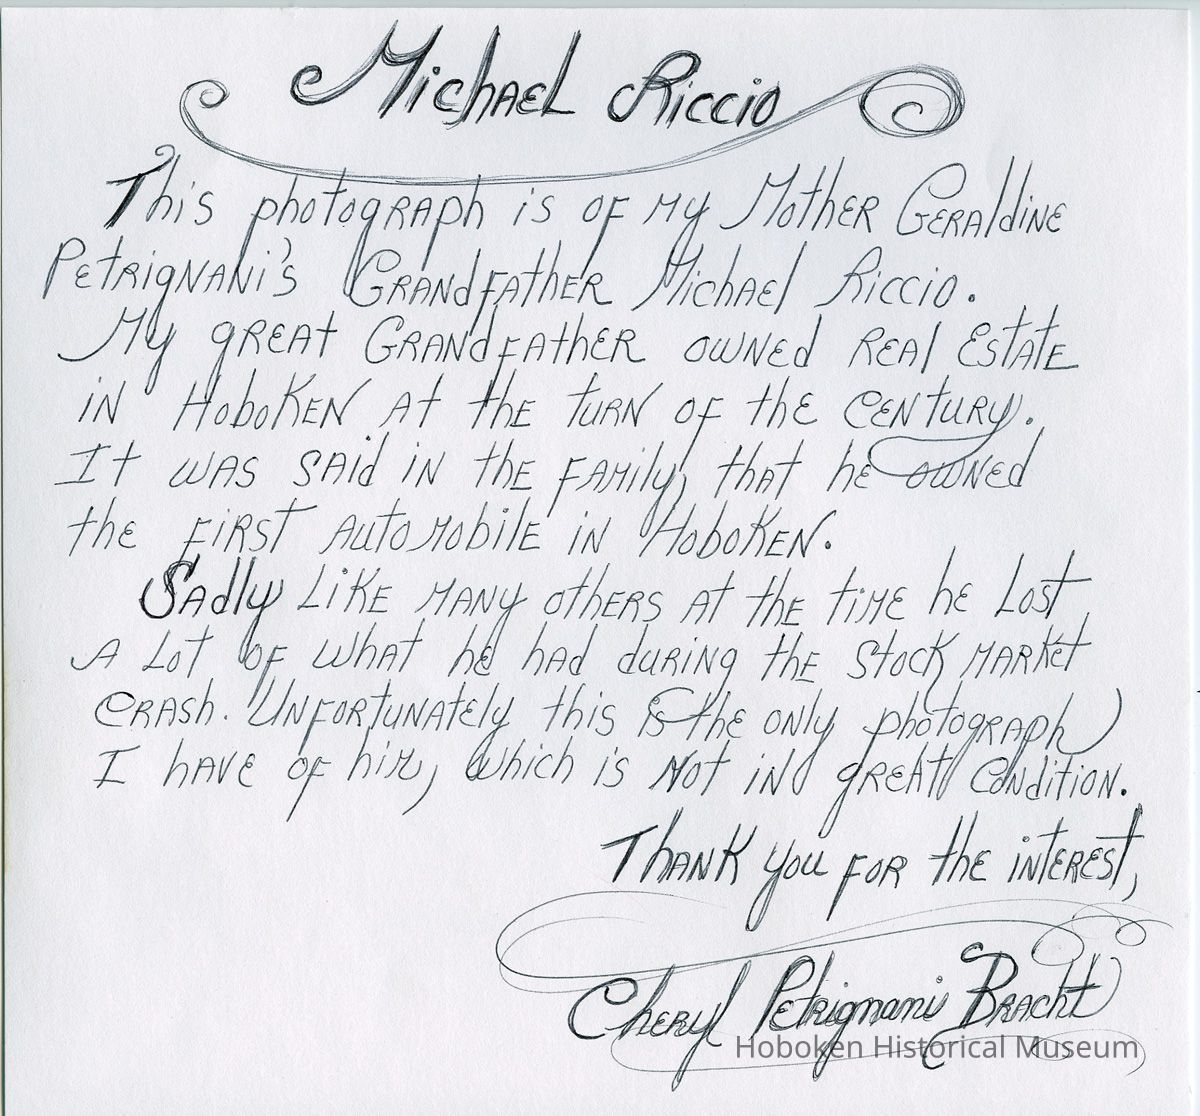 Michael Riccio
This photograph is of my Mother Geraldine
Petrignani's Grandfather Michael Riccio.
My great Grandfather owned real Estate
in Hoboken at the turn of the century.
It was said in the family, that he owned
the first automobile in Hoboken.
Sadly like many others at the time he lost
a lot of what he had during the stock market
crash. Unfortunately this is the only photograph
I have of him, which is not in great condition.
Thank you for the interest,
Cheryl Petrignani Bracht
Hoboken Historical Museum